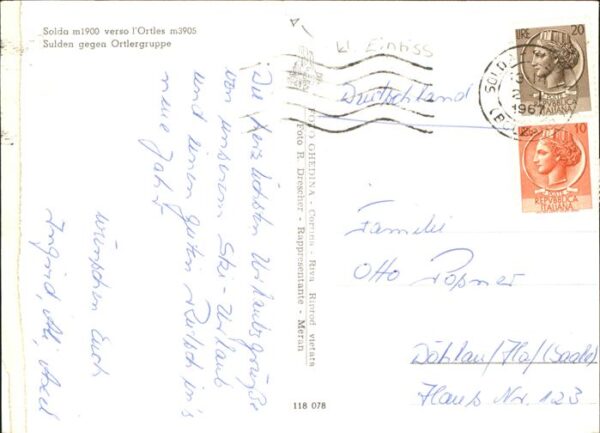 Solda m1900 verso l'Ortles m3905
Sulden gegen Ortlergruppe
kl. Einriss
Die herzlichsten Urlaubsgrüße
von unserem Ski-Urlaub
und einen guten Rutsch in's
neue Jahr
wünschen Euch
Ingrid, Axel
FOTO GHEDINA - Cortina - Riva Riprod vietata
Foto R. Drescher - Rappresentante - Meran
118 078
Deutschland
Familie
Otto
Döhlau/Hof (Saale)
Haus Nr. 123
LIRE 20
REPVBBLICA
ITALIANA
10
POSTE
REPVBBLICA
ITALIANA
SOLDA
1967